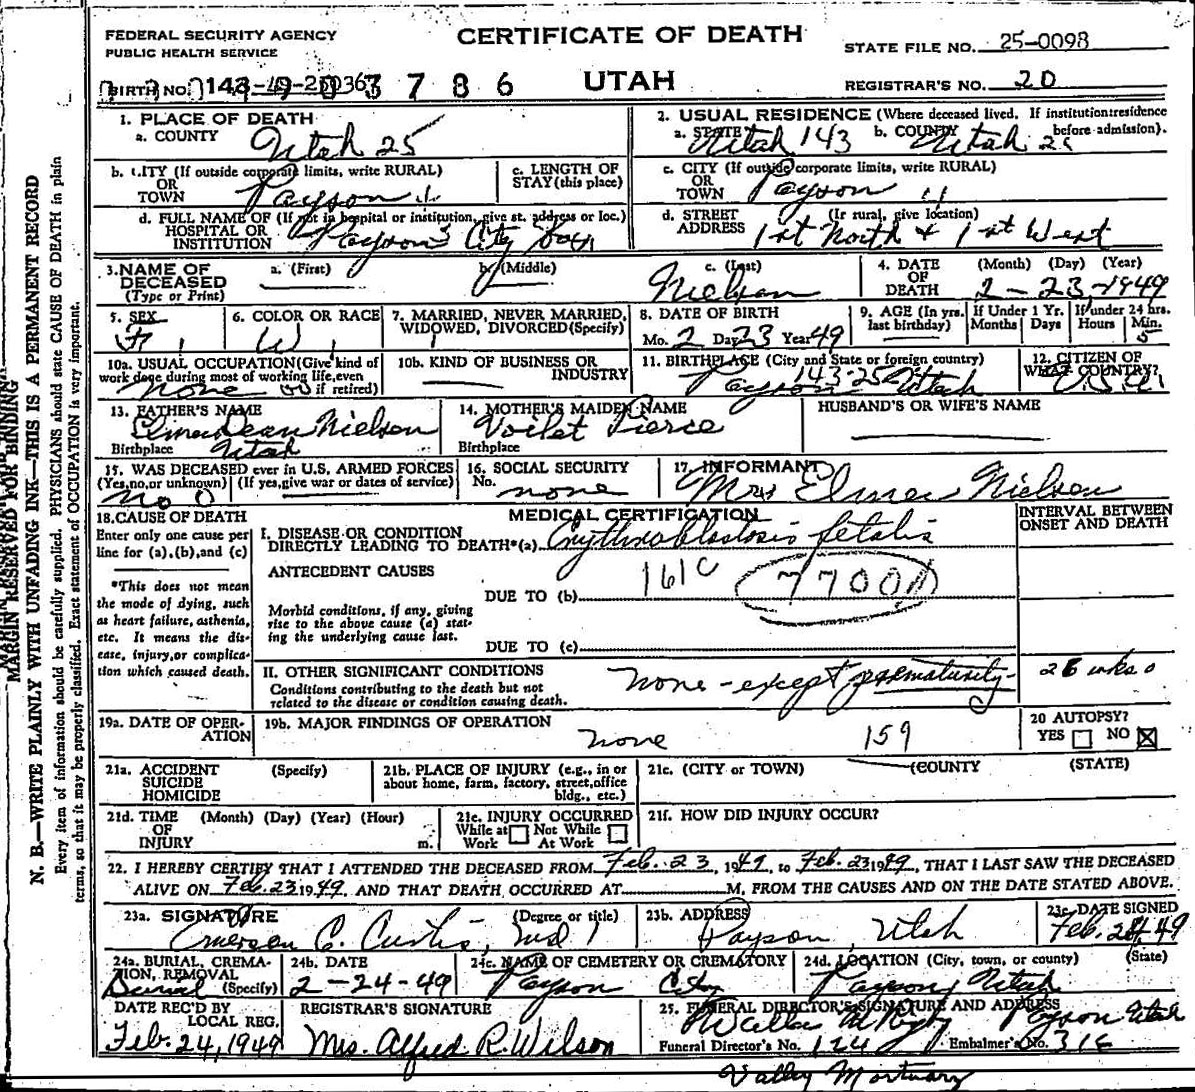 FEDERAL SECURITY AGENCY
PUBLIC HEALTH SERVICE
CERTIFICATE OF DEATH
STATE FILE NO. 25-0098
BIRTH NO. 143
3 7 8 6
UTAH
REGISTRAR'S NO. 20
1. PLACE OF DEATH
a. COUNTY Utah 25
2. USUAL RESIDENCE (Where deceased lived. If institution:residence before admission).
a. STATE Utah 143 b. COUNTY Utah 25
b. CITY (If outside corporate limits, write RURAL) OR TOWN Payson
c. LENGTH OF STAY (this place)
c. CITY (If outside corporate limits, write RURAL) OR TOWN Payson
d. FULL NAME OF (If not in hospital or institution, give st. address or loc.) HOSPITAL OR INSTITUTION Payson City
d. STREET ADDRESS (If rural, give location) 1st North + 1st West
3. NAME OF DECEASED (Type or Print)
a. (First)
b. (Middle)
c. (Last) Nielson
4. DATE OF DEATH (Month) (Day) (Year) 2-23-1949
5. SEX F
6. COLOR OR RACE W
7. MARRIED, NEVER MARRIED, WIDOWED, DIVORCED (Specify) 1
8. DATE OF BIRTH Mo. 2 Day 23 Year 49
9. AGE (In yrs. last birthday)
If Under 1 Yr. Months Days
If under 24 hrs. Hours Min. 5
10a. USUAL OCCUPATION (Give kind of work done during most of working life, even if retired) none
10b. KIND OF BUSINESS OR INDUSTRY
11. BIRTHPLACE (City and State or foreign country) 143-25 Payson Utah
12. CITIZEN OF WHAT COUNTRY? U.S.A.
13. FATHER'S NAME Elmer Dean Nielson
Birthplace Utah
14. MOTHER'S MAIDEN NAME Voilet Pierce
Birthplace
HUSBAND'S OR WIFE'S NAME
15. WAS DECEASED ever in U.S. ARMED FORCES (Yes, no, or unknown) (If yes, give war or dates of service) no 0
16. SOCIAL SECURITY No. none
17. INFORMANT Mrs Elmer Nielson
18. CAUSE OF DEATH
Enter only one cause per line for (a), (b), and (c)
*This does not mean the mode of dying, such as heart failure, asthenia, etc. It means the disease, injury, or complication which caused death.
MEDICAL CERTIFICATION
INTERVAL BETWEEN ONSET AND DEATH
I. DISEASE OR CONDITION DIRECTLY LEADING TO DEATH*(a) Erythroblastosis fetalis
ANTECEDENT CAUSES
161C 7700
DUE TO (b)
Morbid conditions, if any, giving rise to the above cause (a) stating the underlying cause last.
DUE TO (c)
II. OTHER SIGNIFICANT CONDITIONS
Conditions contributing to the death but not related to the disease or condition causing death.
none - except prematurity - wks
19a. DATE OF OPERATION
19b. MAJOR FINDINGS OF OPERATION none 159
20 AUTOPSY? YES NO
21a. ACCIDENT SUICIDE HOMICIDE (Specify)
21b. PLACE OF INJURY (e.g., in or about home, farm, factory, street, office bldg., etc.)
21c. (CITY or TOWN) (COUNTY) (STATE)
21d. TIME OF INJURY (Month) (Day) (Year) (Hour) m.
21e. INJURY OCCURRED While at Work Not While At Work
21f. HOW DID INJURY OCCUR?
22. I HEREBY CERTIFY THAT I ATTENDED THE DECEASED FROM Feb. 23, 1949, to Feb. 23 1949, THAT I LAST SAW THE DECEASED
ALIVE ON Feb. 23 1949, AND THAT DEATH OCCURRED AT M, FROM THE CAUSES AND ON THE DATE STATED ABOVE.
23a. SIGNATURE (Degree or title) Emerson C. Curtis, Md
23b. ADDRESS Payson, Utah
23c. DATE SIGNED Feb. 24, 49
24a. BURIAL, CREMATION, REMOVAL (Specify) Burial
24b. DATE 2-24-49
24c. NAME OF CEMETERY OR CREMATORY Payson City
24d. LOCATION (City, town, or county) (State) Payson, Utah
DATE REC'D BY LOCAL REG. Feb. 24, 1949
REGISTRAR'S SIGNATURE Mrs. Alfred R. Wilson
25. FUNERAL DIRECTOR'S SIGNATURE AND ADDRESS Payson Utah
Funeral Director's No. Embalmer's No. 316
Valley Mortuary
MARGIN RESERVED FOR BINDING
N. B.—WRITE PLAINLY WITH UNFADING INK—THIS IS A PERMANENT RECORD
Every item of information should be carefully supplied. PHYSICIANS should state CAUSE OF DEATH in plain
terms, so that it may be properly classified. Exact statement of OCCUPATION is very important.